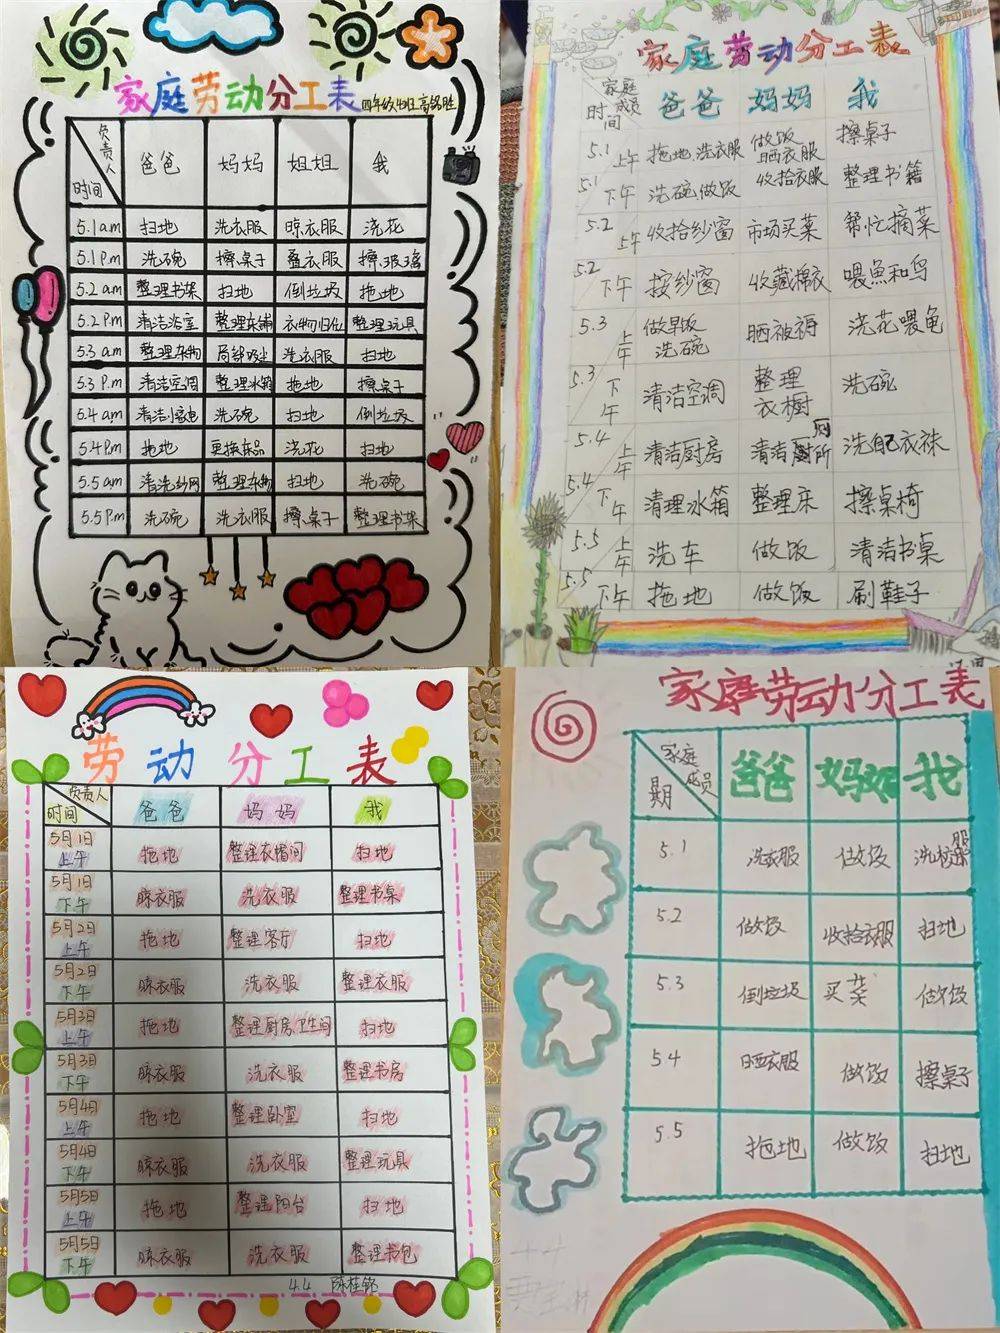 家庭劳动分工表
负责人 爸爸 妈妈 姐姐 我
时间
5.1am 扫地 洗衣服 晾衣服 浇花
5.1P.m 洗碗 擦桌子 叠衣服 擦玻璃
5.2am 整理书架 扫地 倒垃圾 拖地
5.2P.m 清洁浴室 整理床铺 衣物归位 整理玩具
5.3am 整理杂物 洗衣服 扫地
5.3P.m 清洁空调 整理冰箱 拖地 擦桌子
5.4am 清洁家电 洗碗 扫地 倒垃圾
5.4P.m 拖地 更换床品 浇花 扫地
5.5am 清洗纱网 整理杂物 扫地 洗碗
5.5P.m 洗碗 洗衣服 擦桌子 整理书架
家庭劳动分工表
家庭成员 爸爸 妈妈 我
时间
5.1上午 拖地.洗衣服 做饭晒衣服 擦桌子
5.1下午 洗碗.做饭 收拾衣服 整理书籍
5.2上午 收拾纱窗 市场买菜 帮忙摘菜
5.2下午 按纱窗 收藏棉衣 喂鱼和鸟
5.3上午 做早饭洗碗 晒被褥 浇花喂龟
5.3下午 清洁空调 整理衣橱 洗碗
5.4上午 清洁厨房 清洁厕所 洗自己衣袜
5.4下午 清理冰箱 整理床 擦桌椅
5.5上午 洗车 做饭 清洁书桌
5.5下午 拖地 做饭 刷鞋子
劳动分工表
负责人 爸爸 妈妈 我
时间
5月1日上午 拖地 整理衣帽间 扫地
5月1日下午 晾衣服 洗衣服 整理书桌
5月2日上午 拖地 整理客厅 扫地
5月2日下午 晾衣服 洗衣服 整理衣服
5月3日上午 拖地 整理厨房卫生间 扫地
5月3日下午 晾衣服 洗衣服 整理书房
5月4日上午 拖地 整理卧室 扫地
5月4日下午 晾衣服 洗衣服 整理玩具
5月5日上午 拖地 整理阳台 扫地
5月5日下午 晾衣服 洗衣服 整理书包
4.4 陈桂铭
家庭劳动分工表
家庭成员 爸爸 妈妈 我
期
5.1 洗衣服 做饭 洗校服
5.2 做饭 收拾衣服 扫地
5.3 倒垃圾 买菜 做饭
5.4 晒衣服 做饭 擦桌子
5.5 拖地 做饭 扫地
4.4